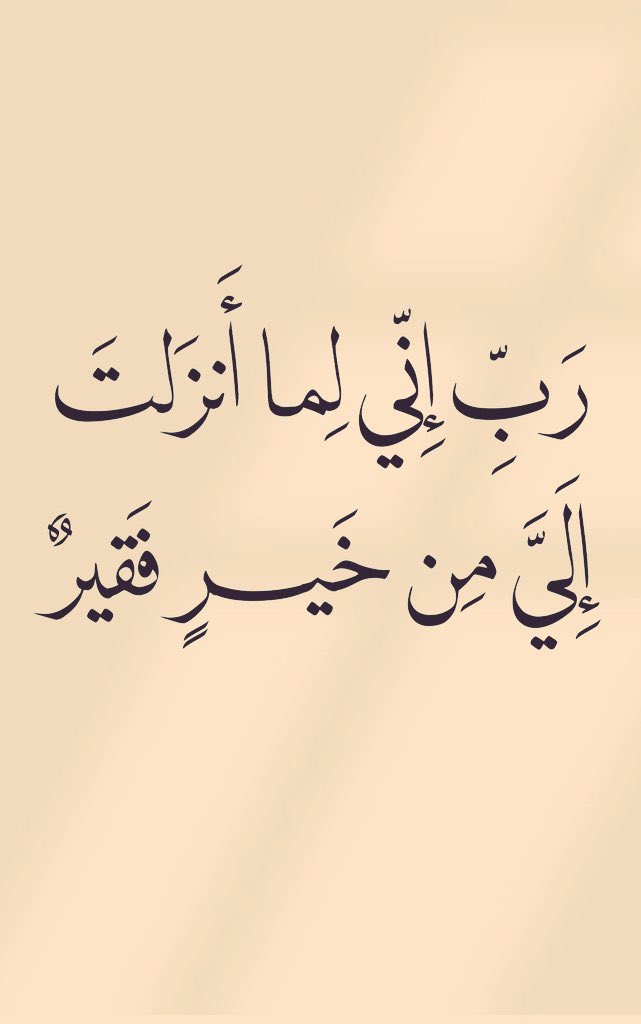 رَبِّ إِنّي لِما أَنزَلتَ
إِلَيَّ مِن خَيـرٍ فَقيرٌ